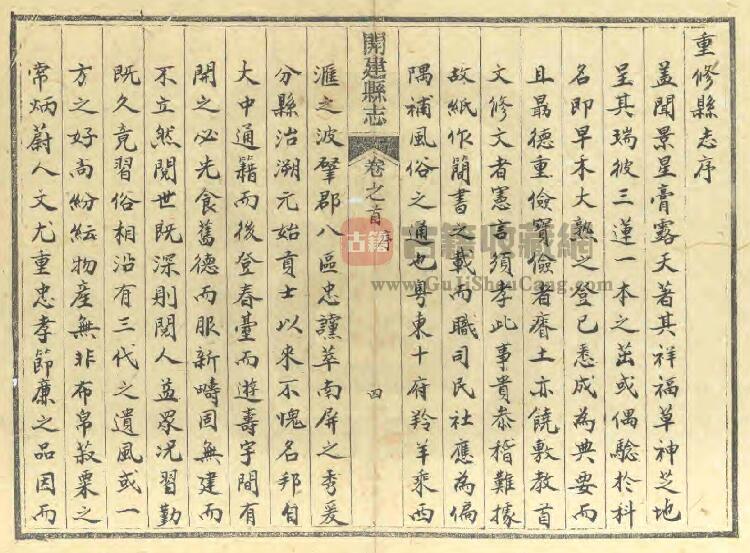 重修縣志序
蓋聞景星膏露天著其祥福草神芝地
呈其瑞彼三蓮一本之茁或偶驗於科
名即早禾大熟之登已悉成為典要而
且最德重儉寶儉者瘠土亦饒敷教首
文修文者憲言須孝此事貴叅稽難據
故紙作簡書之載而職司民社應為偏
隅補風俗之通也粵東十府羚羊乘西
開建縣志
卷之首
序
四
滙之波肇郡八區忠讜萃南屏之秀爰
分縣治溯元始貢士以來不愧名邦自
大中通籍而後登春臺而遊壽宇間有
開之必先食舊德而服新疇固無建而
不立然閱世既深則閱人益眾況習勤
既久竟習俗相沿有三代之遺風或一
方之好尚紛紜物產無非布帛菽粟之
常炳蔚人文尤重忠孝節廉之品因而
古籍
古籍收藏網
www.GuJiShouCang.com